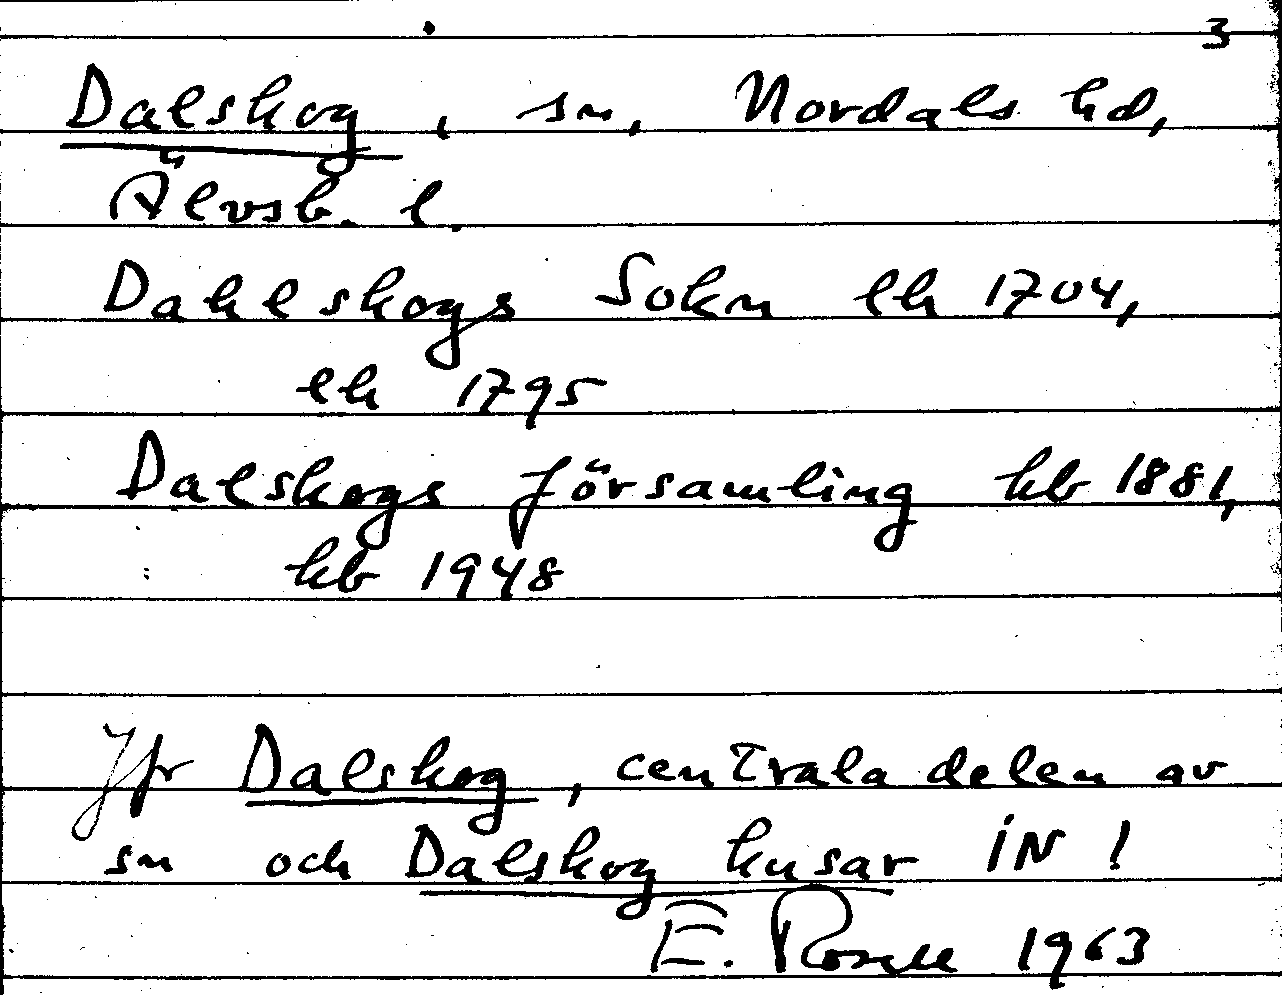 3
Dalskog, sn, Nordals hd,
Älvsb. l.
Dahlskogs Sokn lh 1704,
lh 1795
Dalskogs församling kb 1881,
kb 1948
Jfr Dalskog, centrala delen av
sn och Dalskog husar IN!
E. Rosell 1963